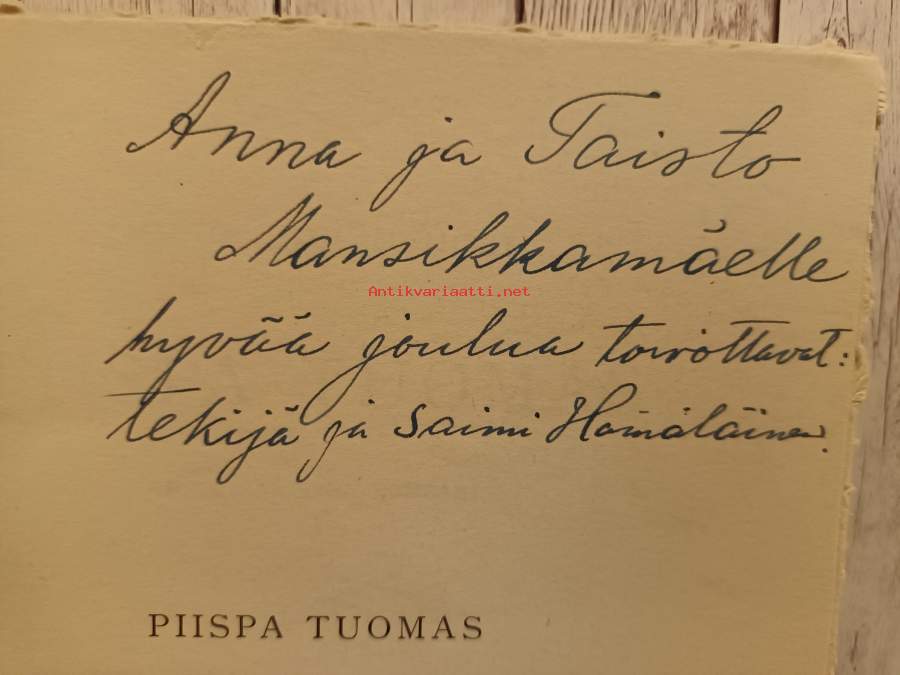 Anna ja Taisto
Mansikkamäelle
Antikvariaatti.net
hyvää joulua toivottavat:
tekijä ja Saimi Hämäläinen.
PIISPA TUOMAS